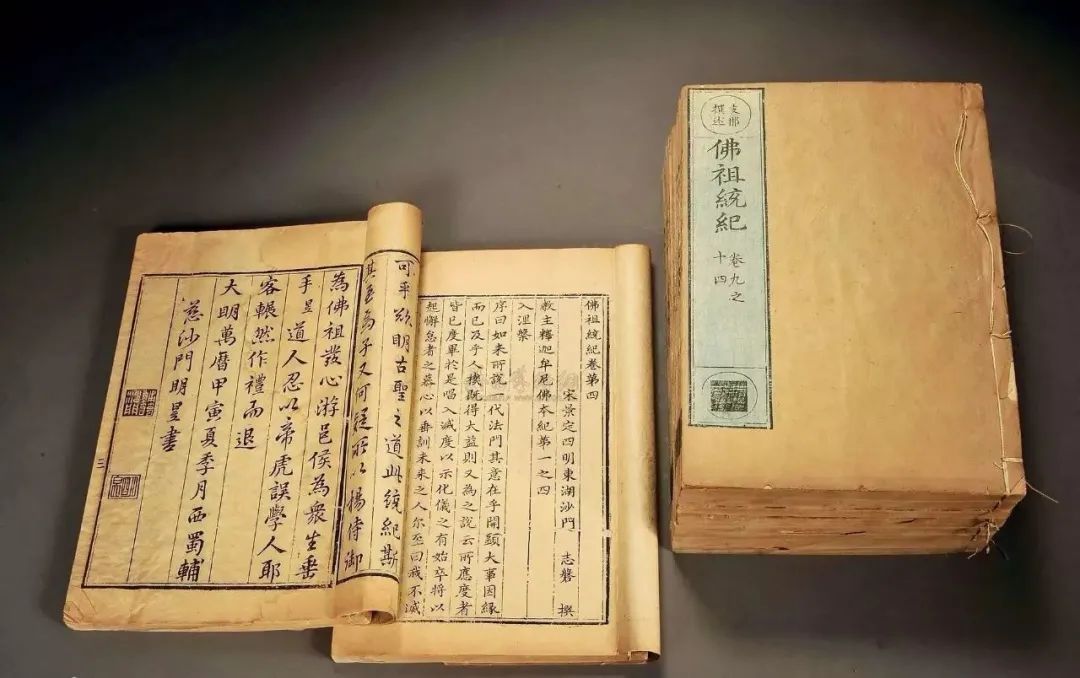 支那
撰述
佛祖統紀
卷九之
十四
佛祖統紀卷第四
宋景定四明東湖沙門 志磐 撰
教主釋迦牟尼佛本紀第一之四
入涅槃
序曰如來所說一代法門其意在乎開顯大事因緣
而已及乎人機既得大益則又為之說云所應度者
皆已度畢於是唱入滅度以示化儀之有始卒將以
起懈怠者之慕心以垂訓未來之人尔至曰我不滅
可乎欲明古聖之道此統紀斯
為子又可疑所以楊侍御
為佛祖發心游邑侯為衆生垂
手昱道人忍以帝虎誤學人耶
客囅然作禮而退
大明萬曆甲寅夏季月西蜀輔
慈沙門明昱書
三